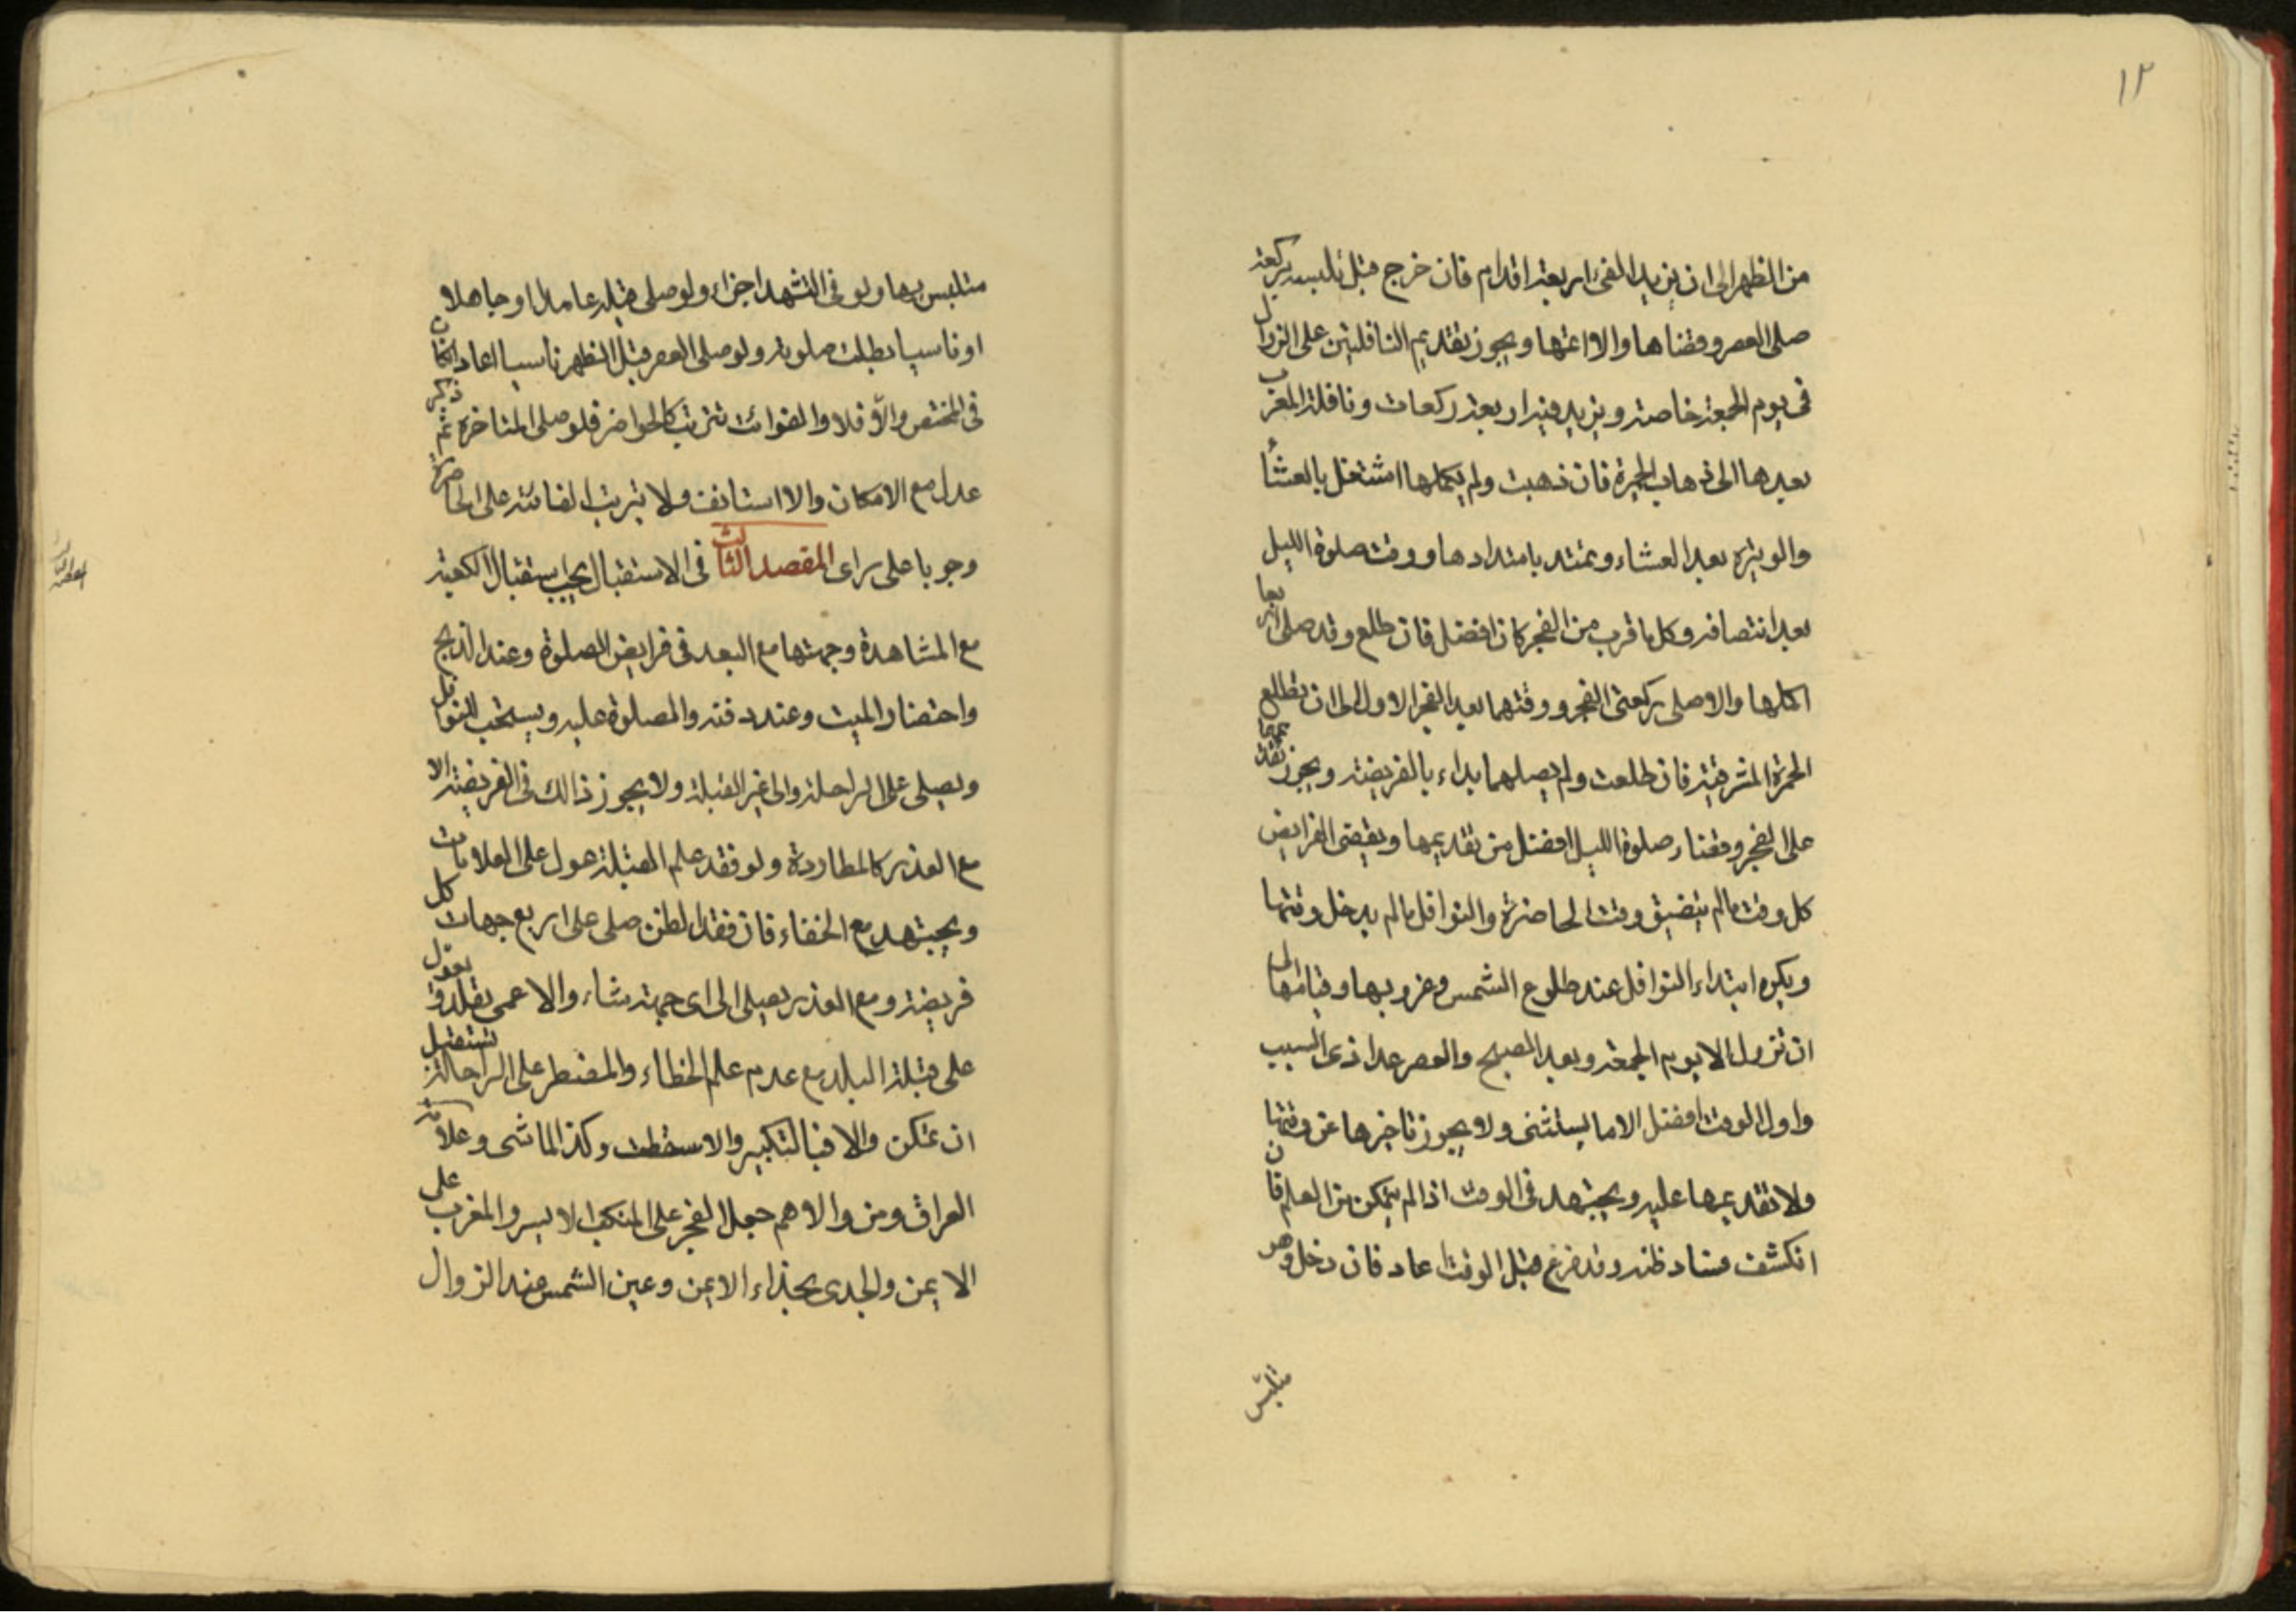 ١٢
من الظهر الى ان يزيد الفئ اربعة اقدام فان خرج قبل تلبسه بركعة
صلى العصر وقضاها والا اتمها ويجوز تقديم النافلتين على الزوال
فى يوم الجمعة خاصة ويزيد فيه اربعة ركعات ونافلة المغرب
بعدها الى ذهاب الحمرة فان ذهبت ولم يكملها اشتغل بالعشاء
والوتيرة بعد العشاء وتمتد بامتدادها ووقت صلوة الليل
بعد انتصافه وكل ما قرب من الفجر كان افضل فان طلع وقد صلى اربعا
اكملها والا صلى ركعتى الفجر ووقتهما بعد الفجر الاول الى ان يطلع
الحمرة المشرقية فان طلعت ولم يصلهما بداء بالفريضة ويجوز تقديمهما
على الفجر وقضاء صلوة الليل افضل من تقديمها ويقضى الفرايض
كل وقت ما لم يتضيق وقت الحاضرة والنوافل ما لم يدخل وقتها
ويكره ابتداء النوافل عند طلوع الشمس وغروبها وقيامها الى
ان تزول الا يوم الجمعة وبعد الصبح والعصر عدا ذى السبب
واول الوقت افضل الا ما يستثنى ولا يجوز تاخيرها عن وقتها
ولا تقديمها عليه ويجتهد فى الوقت اذا لم يتمكن من العلم فان
انكشف فساد ظنه وقد فرغ قبل الوقت اعاد فان دخل وهو
متلبس
متلبس بها ولو فى التشهد اجزاء ولو صلى قبله عامدا او جاهلا
او ناسيا بطلت صلوته ولو صلى العصر قبل الظهر ناسيا اعاد ان كان
فى المختص والا فلا والفوائت تترتب كالحواضر فلو صلى المتاخرة ثم ذكر
عدل مع الامكان والا استانف ولا يترتب الفائتة على الحاضرة
وجوبا على راى المقصد الثالث فى الاستقبال يجب استقبال الكعبة
المقصد الثالث
مع المشاهدة وجهتها مع البعد فى فرايض الصلوة وعند الذبح
واحتضار الميت وعند دفنه والصلوة عليه ويستحب للنوافل
ويصلى على الراحلة والى غير القبلة ولا يجوز ذالك فى الفريضة الا
مع العذر كالمطاردة ولو فقد علم القبلة عول على العلامات
ويجتهد مع الخفاء فان فقد الظن صلى على اربع جهات كل
فريضة ومع العذر يصلى الى اى جهة شاء والاعمى يقلد ويعول
على قبلة البلد مع عدم علم الخطاء والمضطر على الراحلة يستقبل
ان تمكن والا فبالتكبير والا سقطت وكذا الماشى وعلامة
العراق ومن والاهم جعل الفجر على المنكب الايسر والمغرب على
الايمن والجدى بحذاء الايمن وعين الشمس عند الزوال